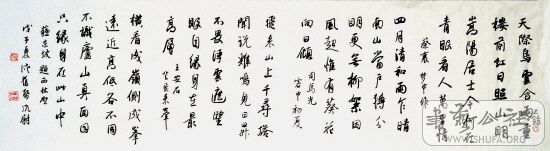 天際烏雲含雨重
樓前紅日照山明
嵩陽居士今何在
青眼看人萬里情
蔡襄 夢中作
四月清和雨乍晴
南山當戶轉分
明更無柳絮因
風起惟有葵花
向日傾
司馬光
客中初夏
飛來山上千尋塔
聞說雞鳴見日昇
不畏浮雲遮望
眼自緣身在最
高層
王安石
登飛來峯
橫看成嶺側成峯
遠近高低各不同
不識廬山真面目
只緣身在此山中
蘇東坡 題西林壁
戊子夏
SHUFA.ORG